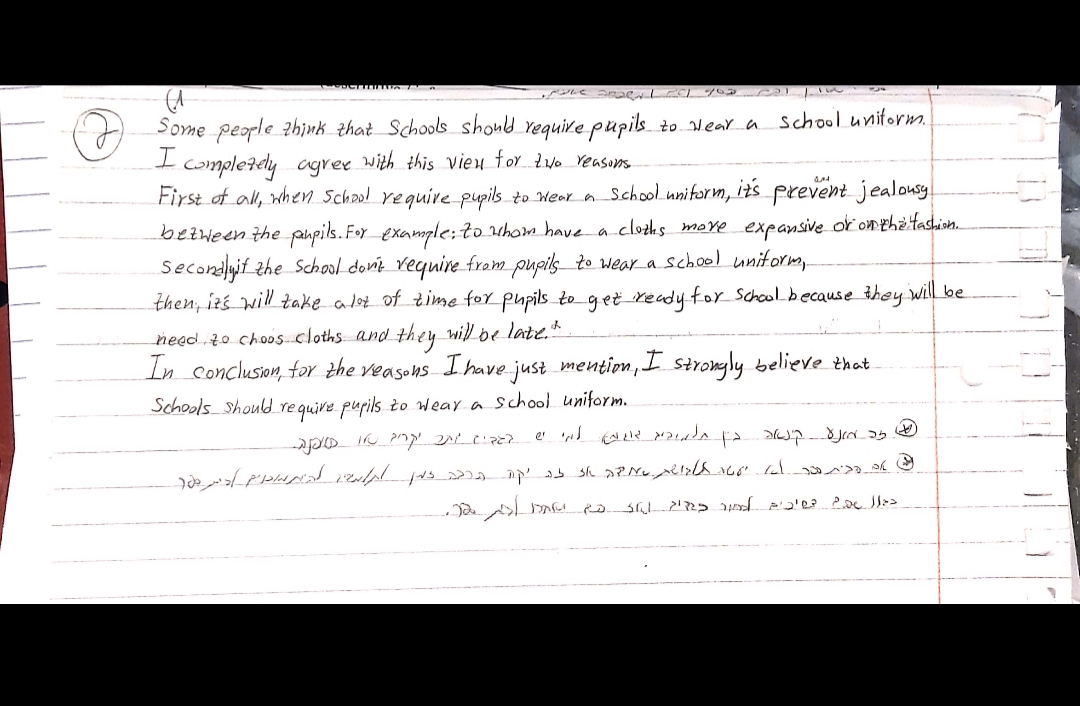 (1
2
Some people think that Schools should require pupils to wear a school uniform.
I completely agree with this view for two reasons
First of all, when School require pupils to wear a school uniform, it's prevent jealousy
between the pupils. For example: to whom have a cloths more expansive or on the fashion.
Secondly, if the School don't require from pupils to wear a school uniform,
then, it's will take a lot of time for pupils to get ready for School because they will be
need to choos cloths and they will be late.*
In conclusion, for the reasons I have just mention, I strongly believe that
Schools should require pupils to wear a school uniform.
זה מונע קנאה בין תלמידים למי יש בגדים יותר יקרים או
אם הבית ספר לא אז זה יקח הרבה זמן לבית ספר
בגלל שהם צריכים לבחור בגדים ואז הם יאחרו לבית ספר.